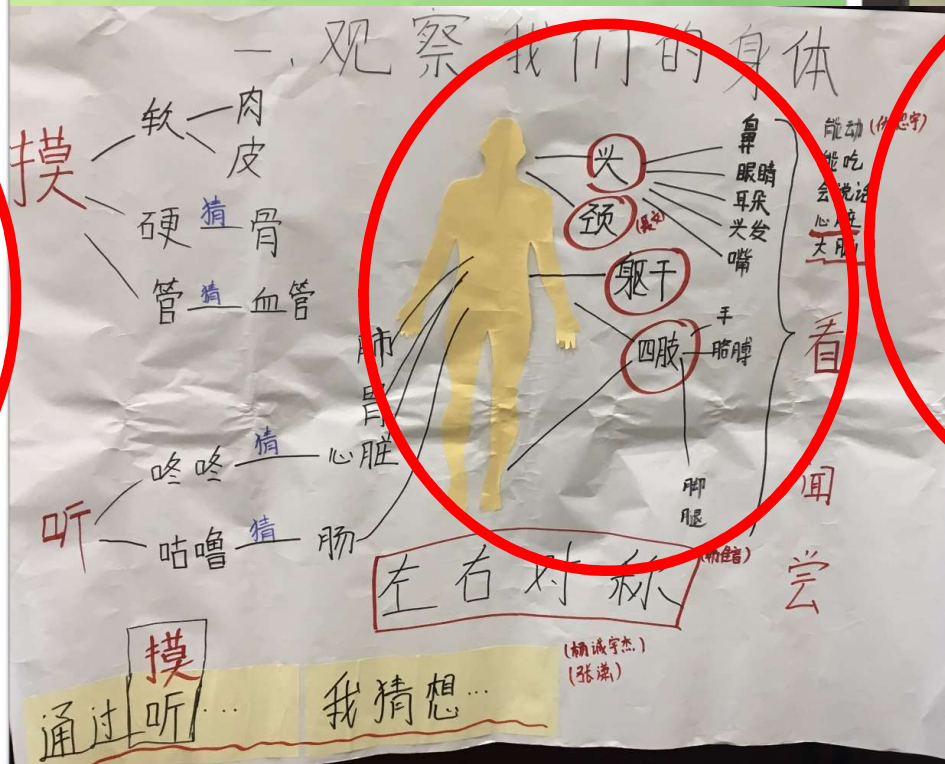 一、观察我们的身体
摸
软
肉
皮
硬 猜 骨
管 猜 血管
听
咚咚 猜 心脏
咕噜 猜 肠
肺
胃
头
颈
躯干
四肢
鼻
眼睛
耳朵
头发
嘴
手
胳膊
脚
腿
能动
能吃
会说话
心脏
大脑
看
闻
尝
左右对称
(张潇)
摸
通过听… 我猜想…